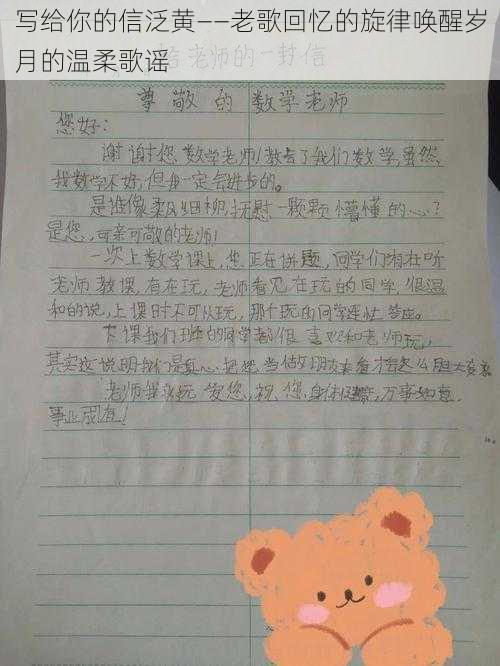 写给你的信泛黄——老歌回忆的旋律唤醒岁
月的温柔歌谣
给老师的一封信
尊敬的数学老师
您好:
谢谢您,数学老师!教会了我们数学,虽然
我数学不好,但我一定会进步的。
是谁像柔风细雨,抚慰一颗颗懵懂的心?
是您,可亲可敬的老师!
一次上数学课上,您正在讲题,同学们有在听
老师教课,有在玩,老师看见在玩的同学,很温
和的说,上课时不可以玩,那个玩的同学连忙答应。
下课我们班的同学都很喜欢和老师玩,
其实这说明我们是真心把您当做朋友来看才会这么胆大
老师我永远爱您,祝您,身体健康,万事如意,
事业成有!